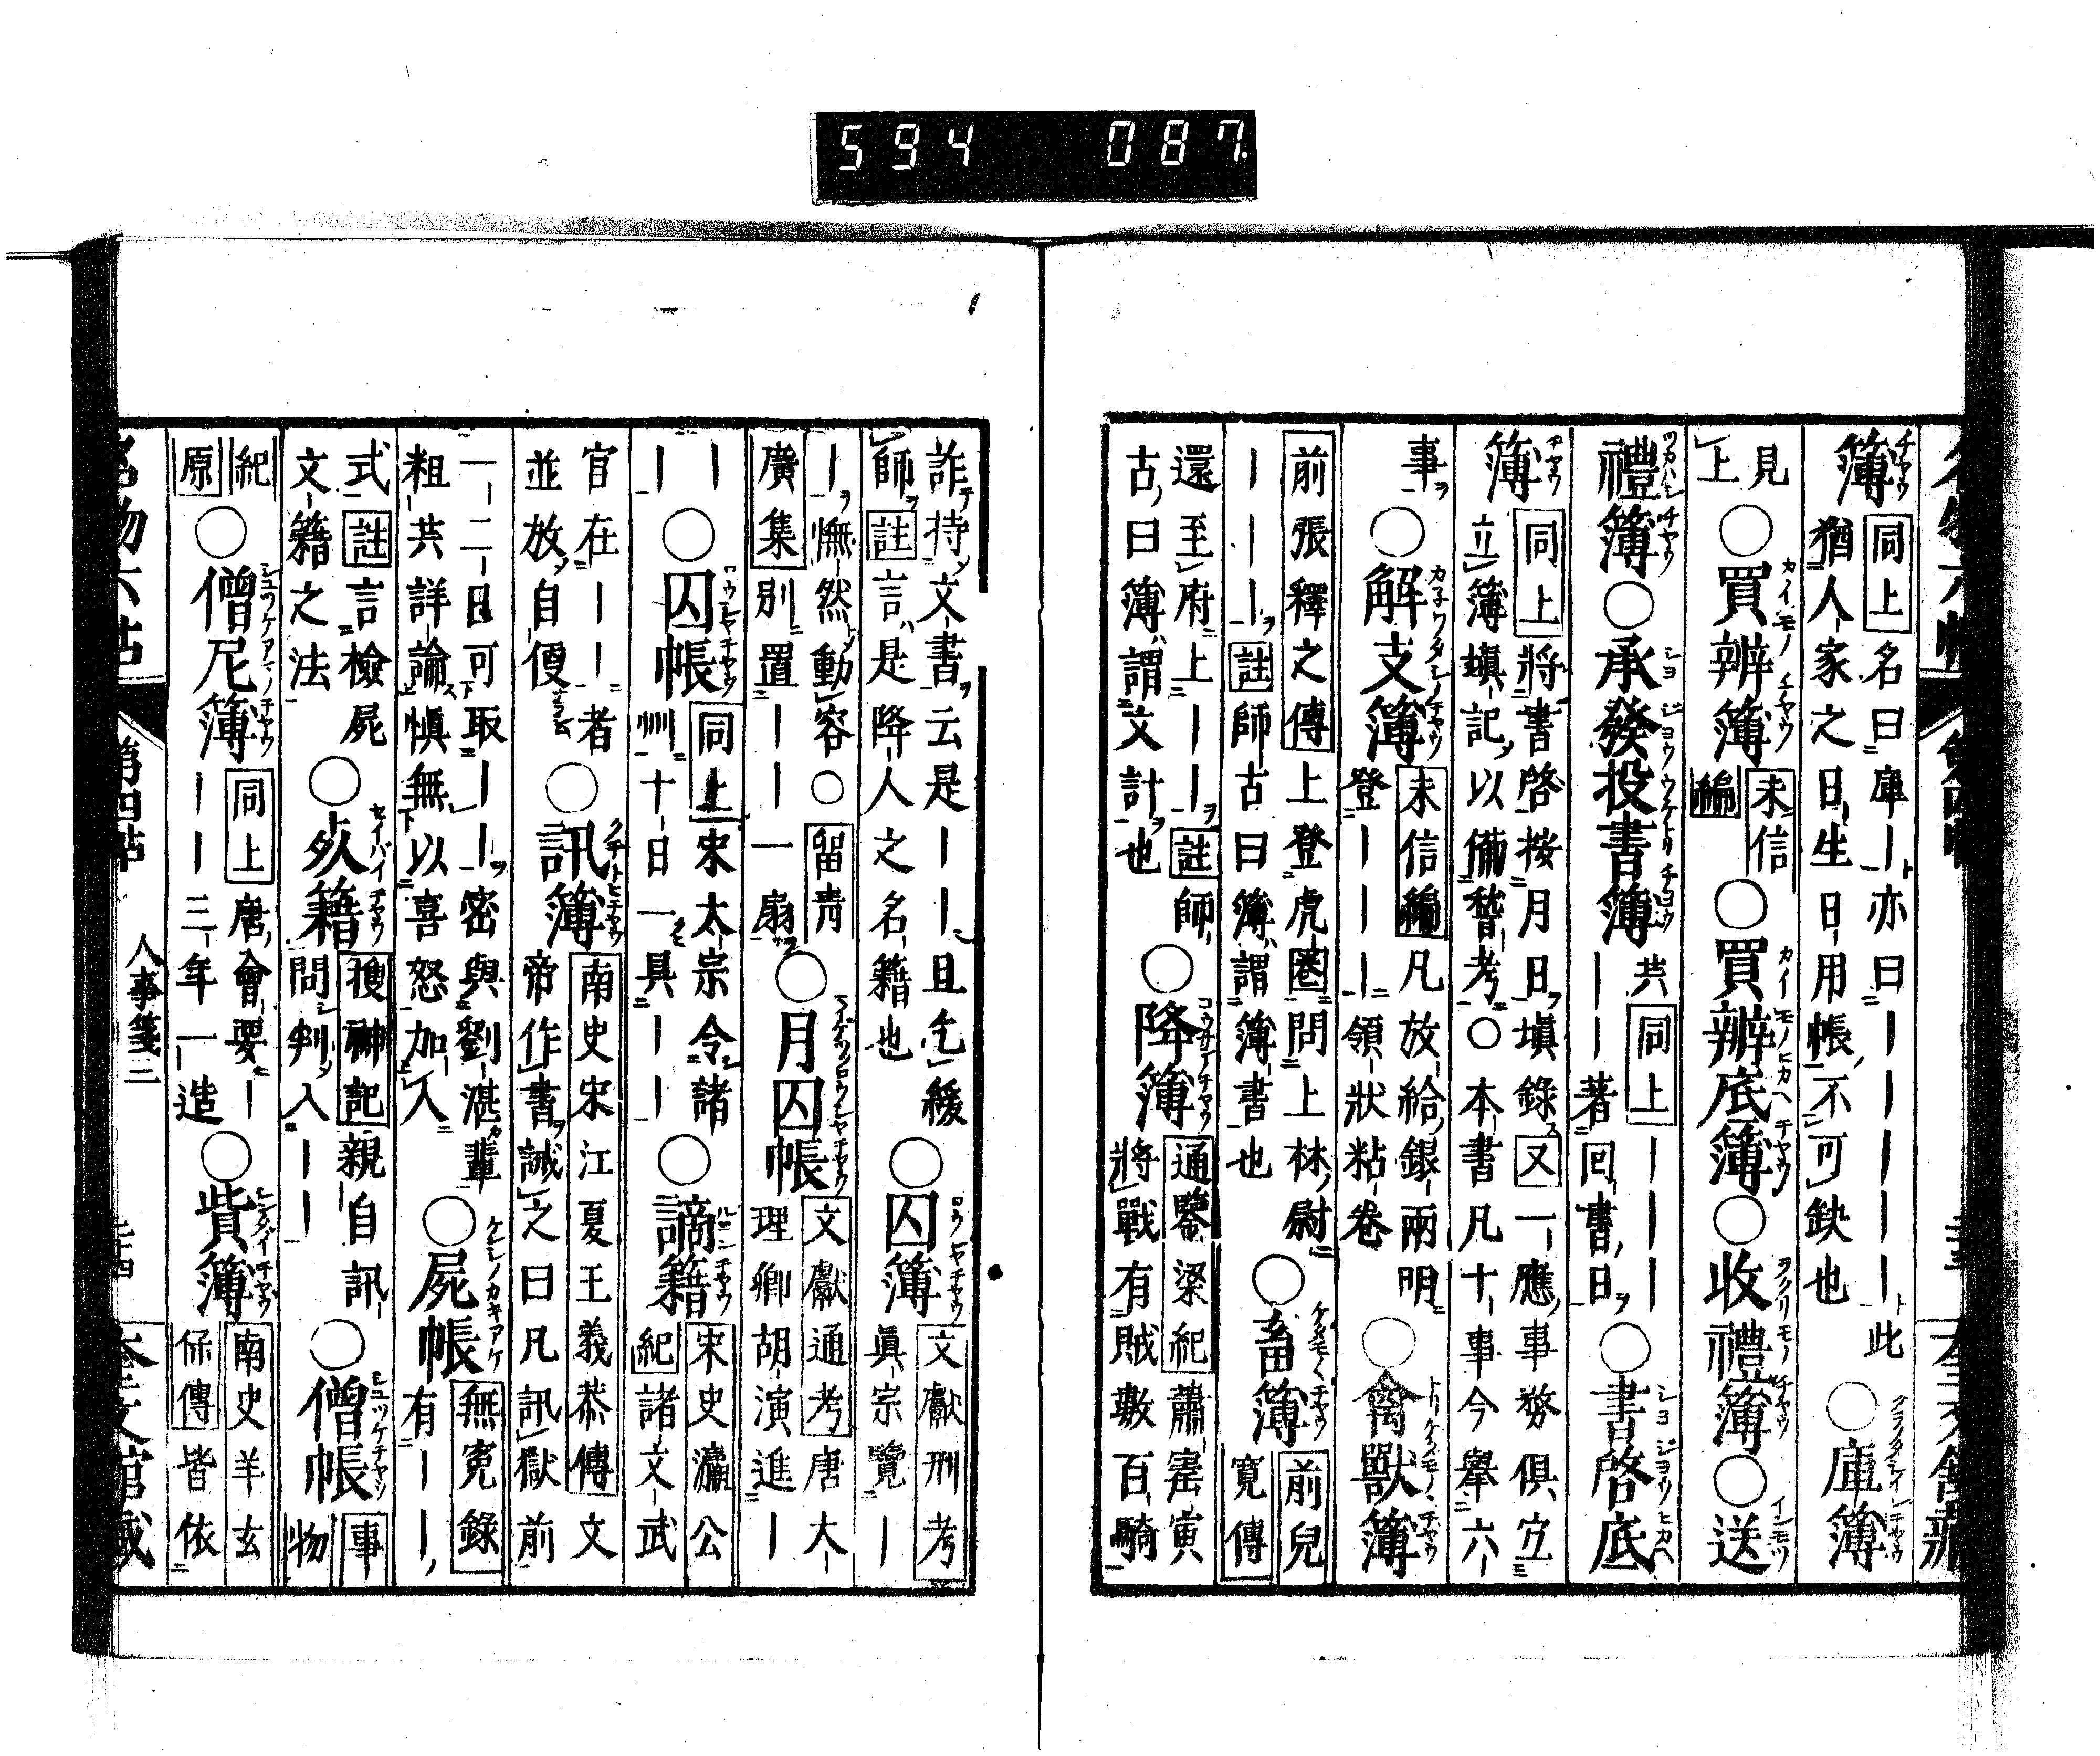 594 087
簿 同上 名曰庫｜亦曰｜｜｜｜｜此
猶人家之日生日用帳不可缺也
○庫簿
見上
○買辨簿 未信編
○買辨底簿○收禮簿○送
禮簿○承發投書簿 共同上｜｜｜
｜｜著回書日
○書啓底
簿 同上 將書啓按月日填錄又一應事務俱宜
立簿填記以備稽考○本書凡十事今舉六
事
○解支簿 未信編 凡放給銀兩明
登｜｜｜領狀粘卷
○禽獸簿
前張釋之傳 上登虎圈問上林尉
｜｜｜｜註師古曰簿謂簿書也
○畜簿 前兒寛傳
還至府上｜｜註師
古曰簿謂文計也
○降簿 通鑒梁紀 蕭寅
將戰有賊數百騎
詐持文書云是｜｜且乞緩
師註言是降人之名籍也
○囚簿 文獻刑考
眞宗覽｜
｜憮然動容○留青
廣集別置｜｜一扇
○月囚帳 文獻通考 唐大
理卿胡演進｜
｜
｜
○囚帳 同上 宋太宗令諸
州十日一具｜｜
○謫籍 宋史瀛公
紀 諸文武
官在｜｜者
並放自便
○訊簿 南史宋江夏王義恭傳 文
帝作書誡之曰凡訊獄前
一二日可取｜｜密與劉湛輩
粗共詳論愼無以喜怒加人
○屍帳 無寃錄
有｜｜
式註言檢屍
文籍之法
○籍 搜神記 親自訊
問判入｜｜
○僧帳 事物
紀原
○僧尼簿 同上 唐會要｜
｜｜三年一造
○貲簿 南史羊玄
保傳 皆依
名物六帖 第四帖 人事箋二 奎文館藏